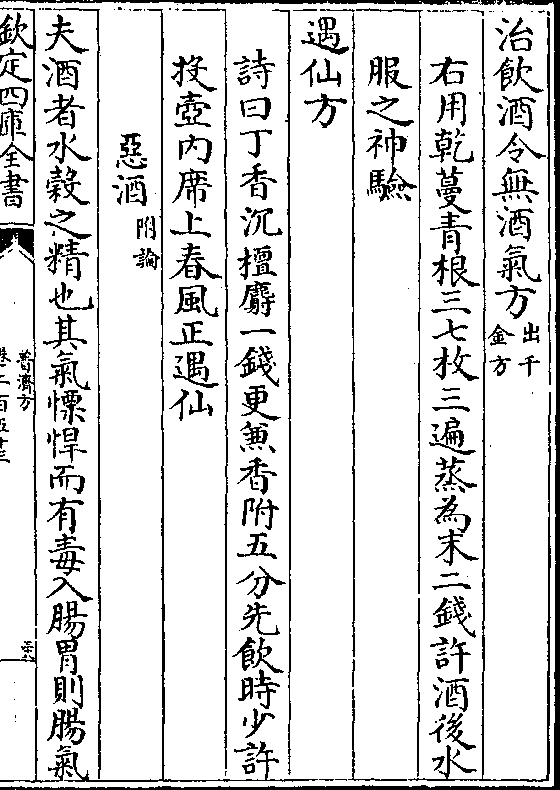 治飲酒令無酒氣方出千金方
右用乾蔓青根三七枚三遍蒸為末二錢許酒後水
服之神驗
遇仙方
詩曰丁香沉擅麝一錢更兼香附五分先飲時少許
投壺内席上春風正遇仙
惡酒附論
夫酒者水穀之精也其氣慓悍而有毒入腸胃則腸氣
欽定四庫全書
普濟方